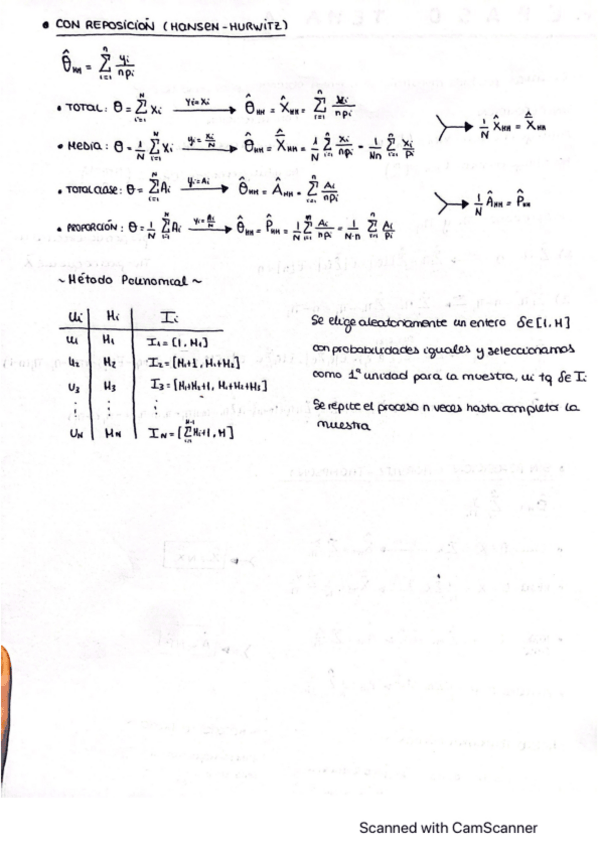 • CON REPOSICIÓN (HANSEN-HURWITZ)
θ̂_HH = Σ_{i=1}^{n} yi/npi
• TOTAL: θ = Σ_{i=1}^{N} Xi —(yi=Xi)→ θ̂_HH = X̂_HH = Σ_{i=1}^{n} Xi/npi
• MEDIA: θ = 1/N Σ_{i=1}^{N} Xi —(yi=Xi/N)→ θ̂_HH = X̄̂_HH = 1/N Σ_{i=1}^{n} Xi/npi = 1/Nn Σ_{i=1}^{n} Xi/pi
> → 1/N X̂_HH = X̄̂_HH
• TOTAL CLASE: θ = Σ_{i=1}^{N} Ai —(yi=Ai)→ θ̂_HH = Â_HH = Σ_{i=1}^{n} Ai/npi
• PROPORCIÓN: θ = 1/N Σ_{i=1}^{N} Ai —(yi=Ai/N)→ θ̂_HH = P̂_HH = 1/N Σ_{i=1}^{n} Ai/npi = 1/N·n Σ_{i=1}^{n} Ai/pi
> → 1/N Â_HH = P̂_HH
~ Método Polinomial ~
Ui | Mi | Ii
U1 | M1 | I1 = [1, M1]
U2 | M2 | I2 = [M1+1, M1+M2]
U3 | M3 | I3 = [M1+M2+1, M1+M2+M3]
⋮ | ⋮ | ⋮
UN | MN | IN = [Σ_{i=1}^{N-1} Mi+1, M]
Se elige aleatoriamente un entero δ∈[1, M]
con probabilidades iguales y seleccionamos
como 1ª unidad para la muestra, ui tq δ∈Ii
Se repite el proceso n veces hasta completar la
muestra
Scanned with CamScanner